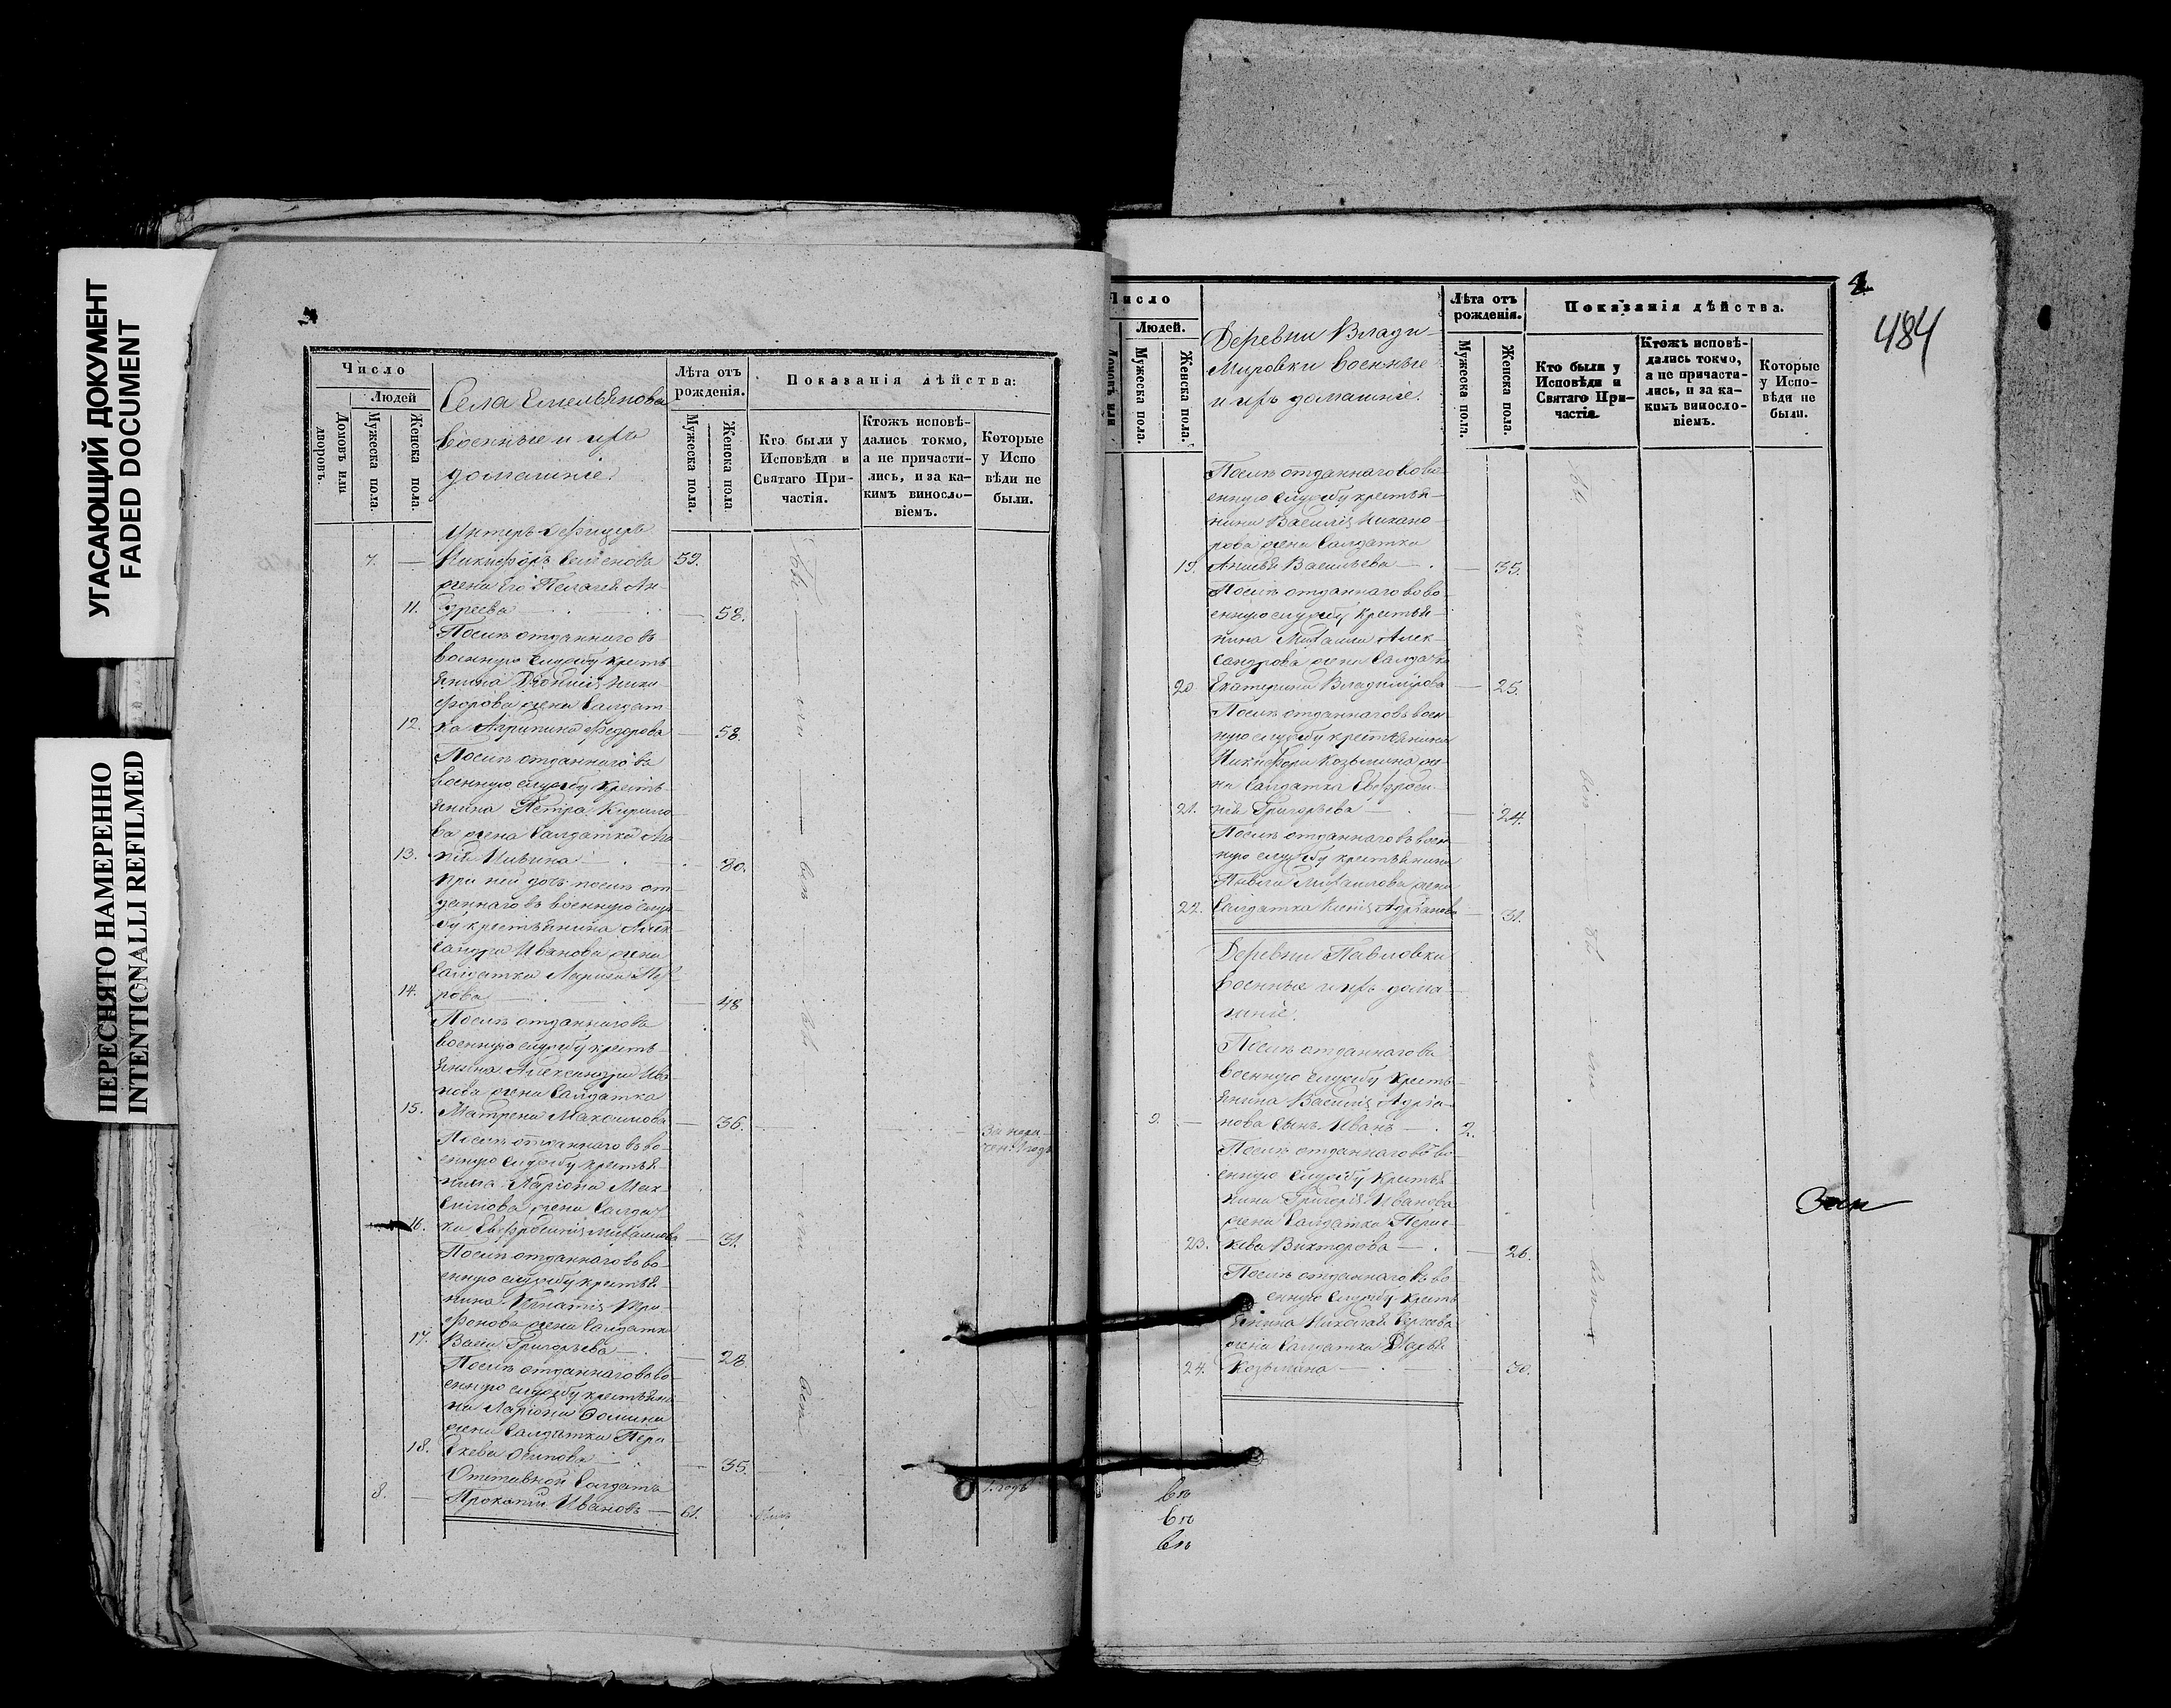 УГАСАЮЩИЙ ДОКУМЕНТ
FADED DOCUMENT
ПЕРЕСНЯТО НАМЕРЕННО
INTENTIONALLI REFILMED
Число
Людей
Домовъ или дворовъ.
Мужеска пола.
Женска пола.
Села Емельянова
военные и ихъ
домашніе.
Лѣта отъ
рожденія.
Мужеска пола.
Женска пола
Показанія дѣйства:
Кто были у
Исповѣди и
Святаго При-
частія.
Ктожъ исповѣ-
дались токмо,
а не причасти-
лись, и за ка-
кимъ виносло-
віемъ.
Которые
у Испо
вѣди не
были.
Унтеръ-Офицеръ
7. — Никифоръ Семеновъ 59.
жена Его Пелагея Ан-
11. дреева — 58.
Послѣ отданнаго въ
военную службу кресть
янина Діонисія Ники-
форова жена Салдат-
12. ка Агрипина Федорова — 58.
Послѣ отданнаго въ
военную службу кресть-
янина Петра Кирило-
ва жена Салдатка
13. — 80.
При ней дочь послѣ от-
даннаго въ военную служ-
бу крестьянина Алек-
сандра Иванова жена
Салдатка
14. рова — 48
Послѣ отданнаго въ
военную службу кресть-
янина Александра Ива-
нова жена Салдатка
15. Матрена Максимова — 36.
Послѣ отданнаго въ во-
енную службу крестья-
нина Ларіона Мак-
симова жена Салдат-
16. ка Евфросинія Михаилова — 31.
Послѣ отданнаго въ во-
енную службу крестья-
нина Игнатія Три-
фонова жена Салдатка
17. Григорьева — 28.
Послѣ отданнаго въ во-
енную службу крестьяни-
на Ларіона Фомина
жена Салдатка Пара-
18. скева Осипова — 35.
Отставной Салдатъ
8. — Прокопій Ивановъ — 61. былъ
1. годъ
484
Число
Людей.
Домовъ или
Мужеска пола.
Женска пола.
Деревни Влади-
мировки военные
и ихъ домашніе.
Лѣта отъ
рожденія.
Мужеска пола.
Женска пола.
Показанія дѣйства.
Кто были у
Исповѣди и
Святаго При-
частія
Ктожъ исповѣ-
дались токмо,
а не причасти-
лись, и за ка-
кимъ виносло-
віемъ.
Которые
у Испо-
вѣди не
были.
Послѣ отданнаго въ во-
енную службу крестья-
нина Василія Никано-
рова жена Салдатка
19. Анисья Васильева — 35.
Послѣ отданнаго въ во-
енную службу крестья-
нина Михаила Алек-
сандрова жена Салдатка
20 Екатерина Владимірова — 25.
Послѣ отданнаго въ воен-
ную службу крестьянина
Никифора Козьмина же-
на Салдатка Евфроси-
21. нія Григорьева — 24.
Послѣ отданнаго въ воен-
ную службу крестьянина
Павла Михаилова жена
22. Салдатка Ксенія Адріанова — 31.
Деревни Павловки
военные и ихъ дома-
шніе.
Послѣ отданнаго въ
военную службу кресть-
янина Василія Адріа-
9. — нова сынъ Иванъ — 2.
Послѣ отданнаго въ во-
енную службу крестья-
нина Григорія Иванова
жена Салдатка Парас-
23. кева Викторова — 26.
Послѣ отданнаго въ во-
енную службу кресть
янина Николая Сергѣева
жена Салдатка Дарья
24. Козьмина — 30.